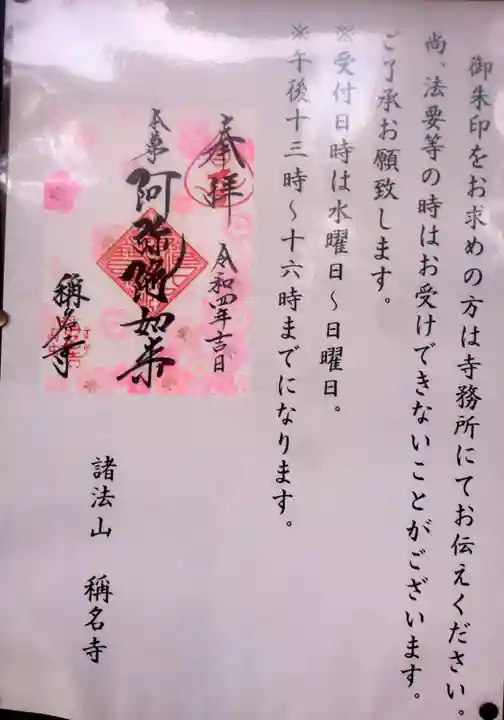 御朱印をお求めの方は寺務所にてお伝えください。
尚、法要等の時はお受けできないことがございます。
ご了承お願致します。
※受付日時は水曜日～日曜日。
※午後十三時～十六時までになります。
奉拝
令和四年吉日
本尊
阿弥陀如来
稱名寺
諸法山 稱名寺